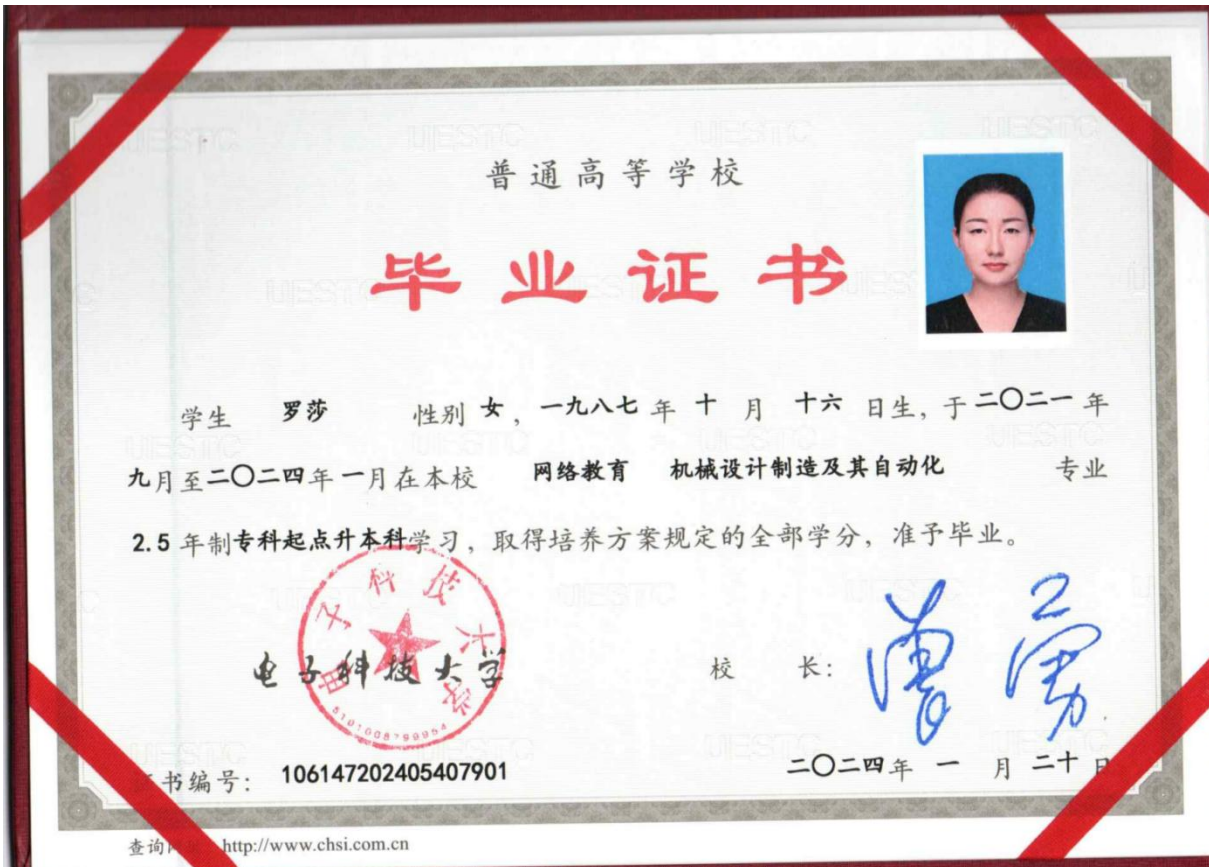 普通高等学校
毕业证书
学生 罗莎 性别 女，一九八七 年 十 月 十六 日生，于 二〇二一 年
九月至二〇二四年一月在本校 网络教育 机械设计制造及其自动化 专业
2.5 年制专科起点升本科学习，取得培养方案规定的全部学分，准予毕业。
电子科技大学
电子科技大学
5101008799954
校 长：
曾勇
书编号： 106147202405407901
二〇二四年 一 月 二十 日
查询 http://www.chsi.com.cn
UESTC